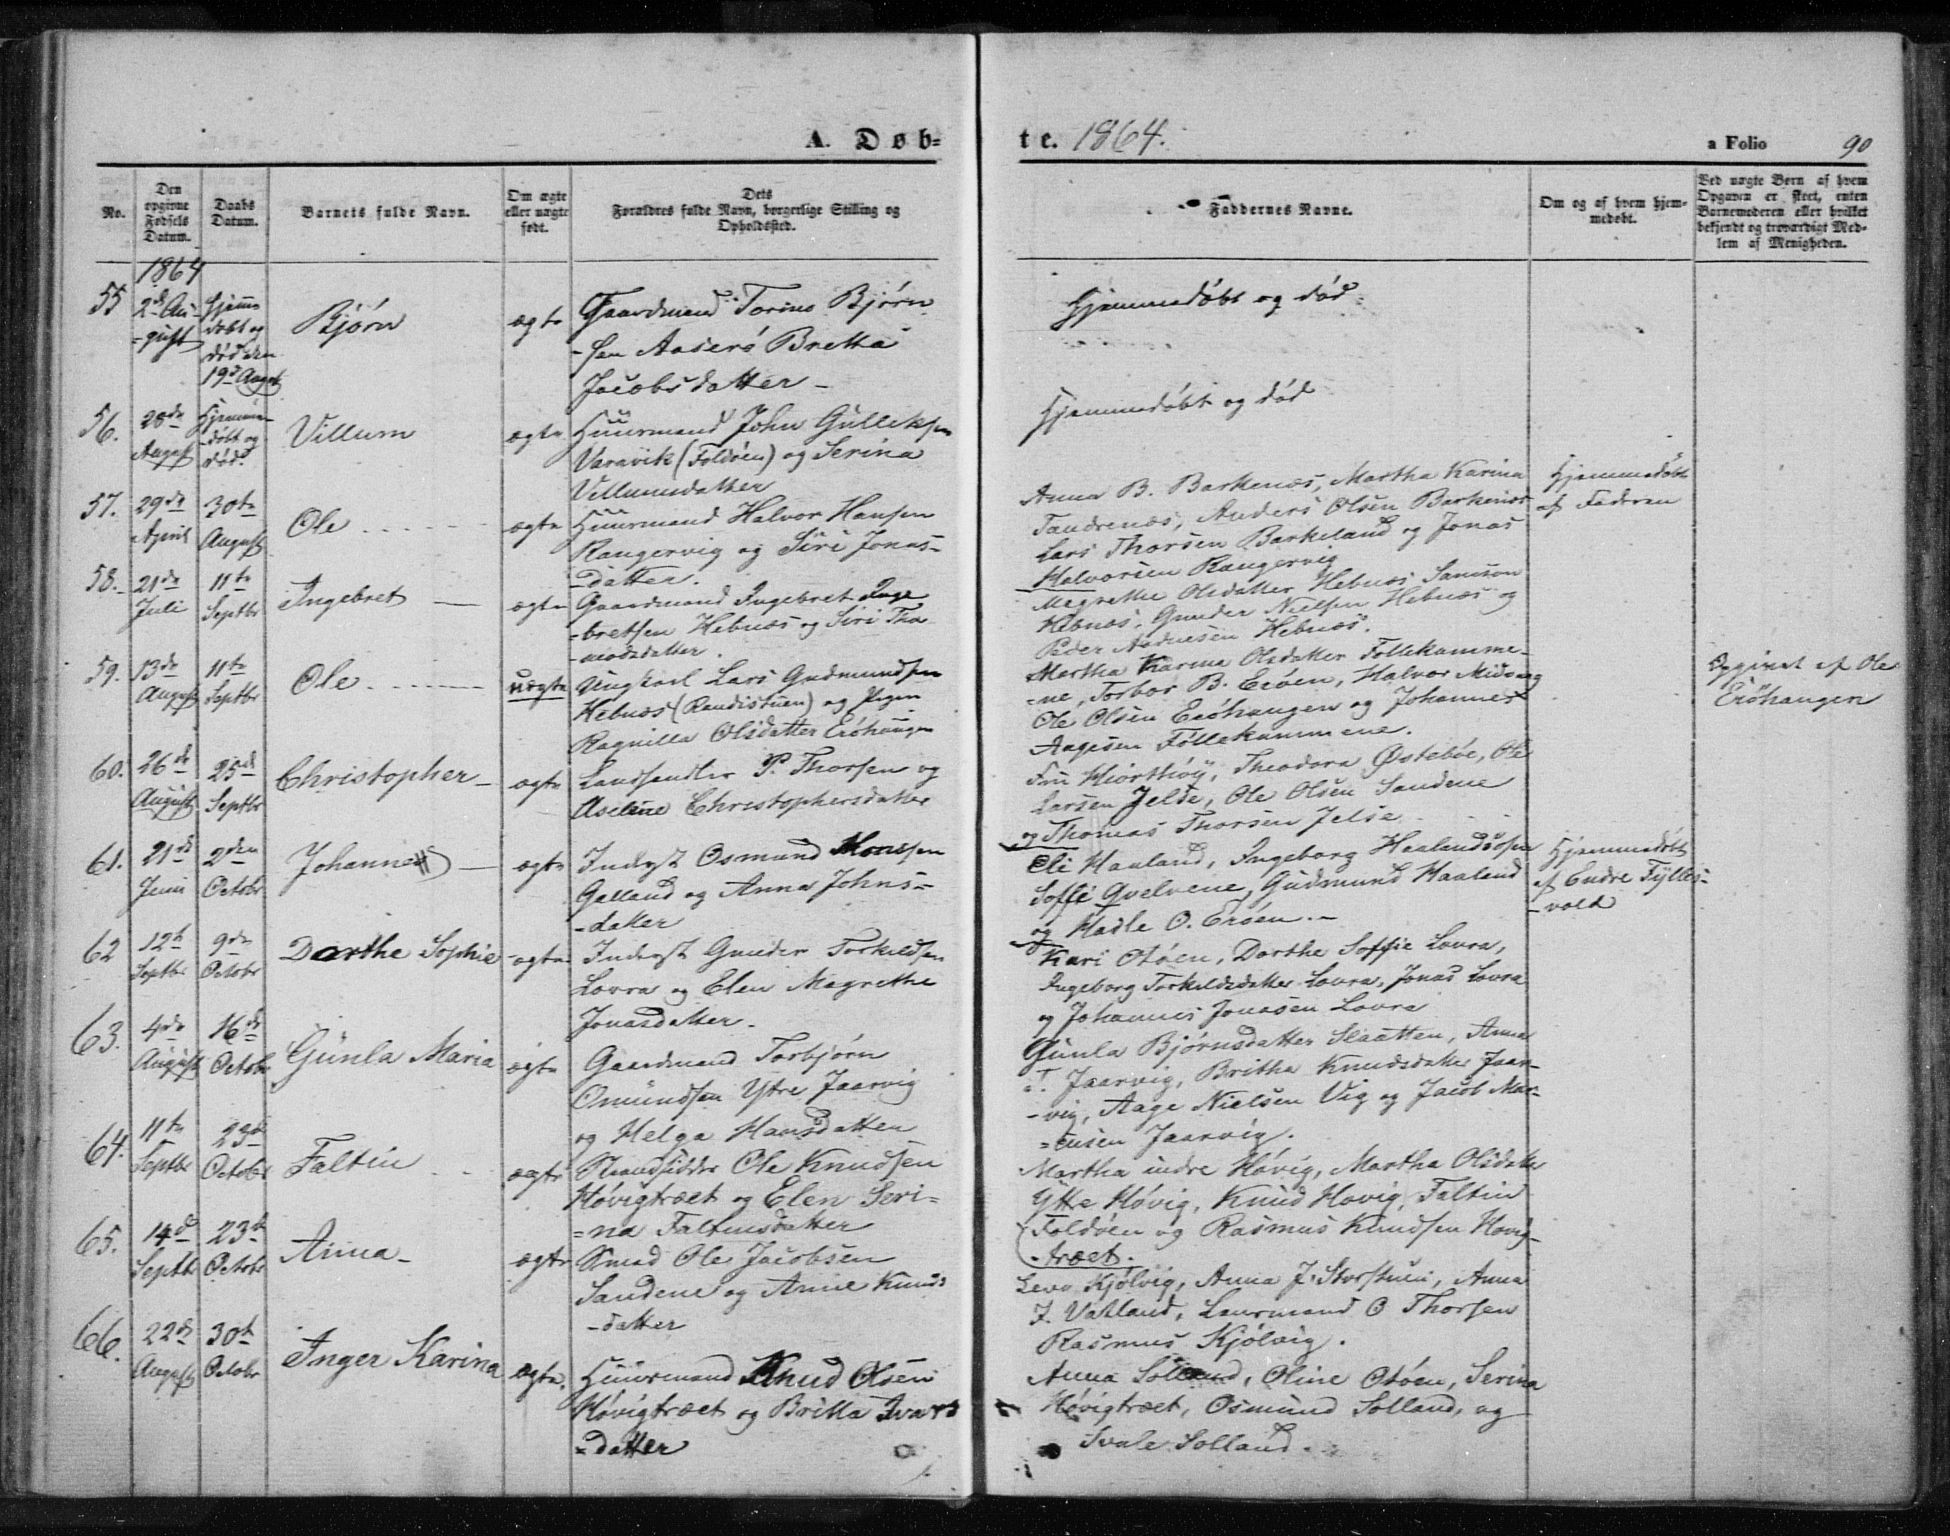 A. Døb-
te. 1864.
a Folio 90
No.
Den opgivne Fødsels Datum.
Daabs Datum.
Barnets fulde Navn.
Om ægte eller uægte født.
Dets Forældres fulde Navn, borgerlige Stilling og Opholdssted.
Faddernes Navne.
Om og af hvem hjemmedøbt.
Ved uægte Børn af hvem Opgaven er skeet, enten Barnemoderen eller hvilket bekjendt og troværdigt Medlem af Menigheden.
1864
55
2d Au-
-gust
Hjemme
døbt og
død den
19d Augst
Bjørn
ægte
Gaardmand Bjørn
-sen Britta
Jacobsdatter -
Hjemmedøbt og død
56.
28de
August
Hjemme-
-døbt og
død.
Villum
ægte
Huusmand John Gulleksen
Varavik (Foldøen) og Serina
Villumsdatter
Hjemmedøbt og død
57.
29de
April
30te
August
Ole
ægte
Huusmand Halvor Hansen
Rangervig og Siri Jonas-
-datter.
Anna B. Barkenæs, Martha Karina
Tandrenæs, Anders Olsen Barkenæs
Lars Thorsen Barkeland og Jonas
Halvorsen Rangervig
Hjemmedøbt
af Faderen
58.
21de
Juli
11te
Septbr
Ingebret
ægte
Gaardmand Ingebret Inge
-bretsen Hebnæs og Siri Tha
-mosdatter.
Magrethe Olsdatter Hebnæs Samson
Hebnæs, Gunder Nielsen Hebnæs og
Peder Hebnæs.
59.
13de
August
11te
Septbr
Ole
uægte
Ungkarl Lars Gudmundsen
Hebnæs (Randistuen) og Pigen
Ragnilla Olsdatter Erøhaugen
Martha Karina Olsdatter Føllekamme-
-ne, Torbor B. Erøen, Halvor
Ole Olsen Erøhaugen og Johannes
Aagesen Føllekammene.
Opgivet af Ole
Erøhaugen
60.
26de
August
25de
Septbr
Christopher
ægte
Landhandler P. Thorsen og
Aselene Christophersdatter
Fru Hiorthøy, Theodora Østebøe, Ole
Larsen Jelse, Ole Olsen Sandene
og Thomas Thorsen Jelse
61.
21de
Juni
2den
Octobr
Johannes
ægte
Inderst Osmund Monssen
Galland og Anna Johns-
-datter
Eli Haaland, Ingeborg
Soffi Qvelvene, Gudmund Haaland
og Hadle O. Erøen.-
Hjemmedøbt
af Endre Fylles-
-vold
62
12te
Septbr
9de
Octobr
Dorthe Sophie
ægte
Inderst Gunder Torkildsen
Lovra og Elen Magrethe
Jonasdatter.
Kari Otøen, Dorthe Soffie Lovra,
Ingeborg Torkildsdatter Lovra, Jonas Lovra
og Johannes Jonasen Lovra
63.
4de
August
16de
Octobr
Gunla Maria
ægte
Gaardmand Torbjørn
Omundsen Ytre Jaarvig
og Helga Hansdatter
Gunla Bjørnsdatter Slaatten, Anna
T. Jaarvig, Britha Knudsdatter Jaar-
-vig, Aage Nielsen Vig og Jacob Mar-
-tensen Jaarvig.
64.
11te
Septbr
23d
Octobr
Faltin
ægte
Strandsidder Ole Knudsen
Høvigtræet og Elen Seri-
-na Faltinsdatter
Martha indre Høvig, Martha Olsdatter
Ytre Høvig, Knud Høvig, Faltin
Foldøen og Rasmus Knudsen Høvig-
-træet.
65.
14de
Septbr
23d
Octobr
Anna
ægte
Smed Ole Jacobsen
Sandene og Anne Knuds
-datter
Kjølvig, Anna J. Storstuen, Anna
J. Vatland, Laurmand O Thorsen
Rasmus Kjølvig.
66.
22de
August
30te
Octobr
Inger Karina
ægte.
Huusmand Knud Olsen
Høvigtræet og Britta Ivars
-datter
Anna Solland, Oline Otøen, Serina
Høvigtræet, Osmund Solland, og
Svale Solland.